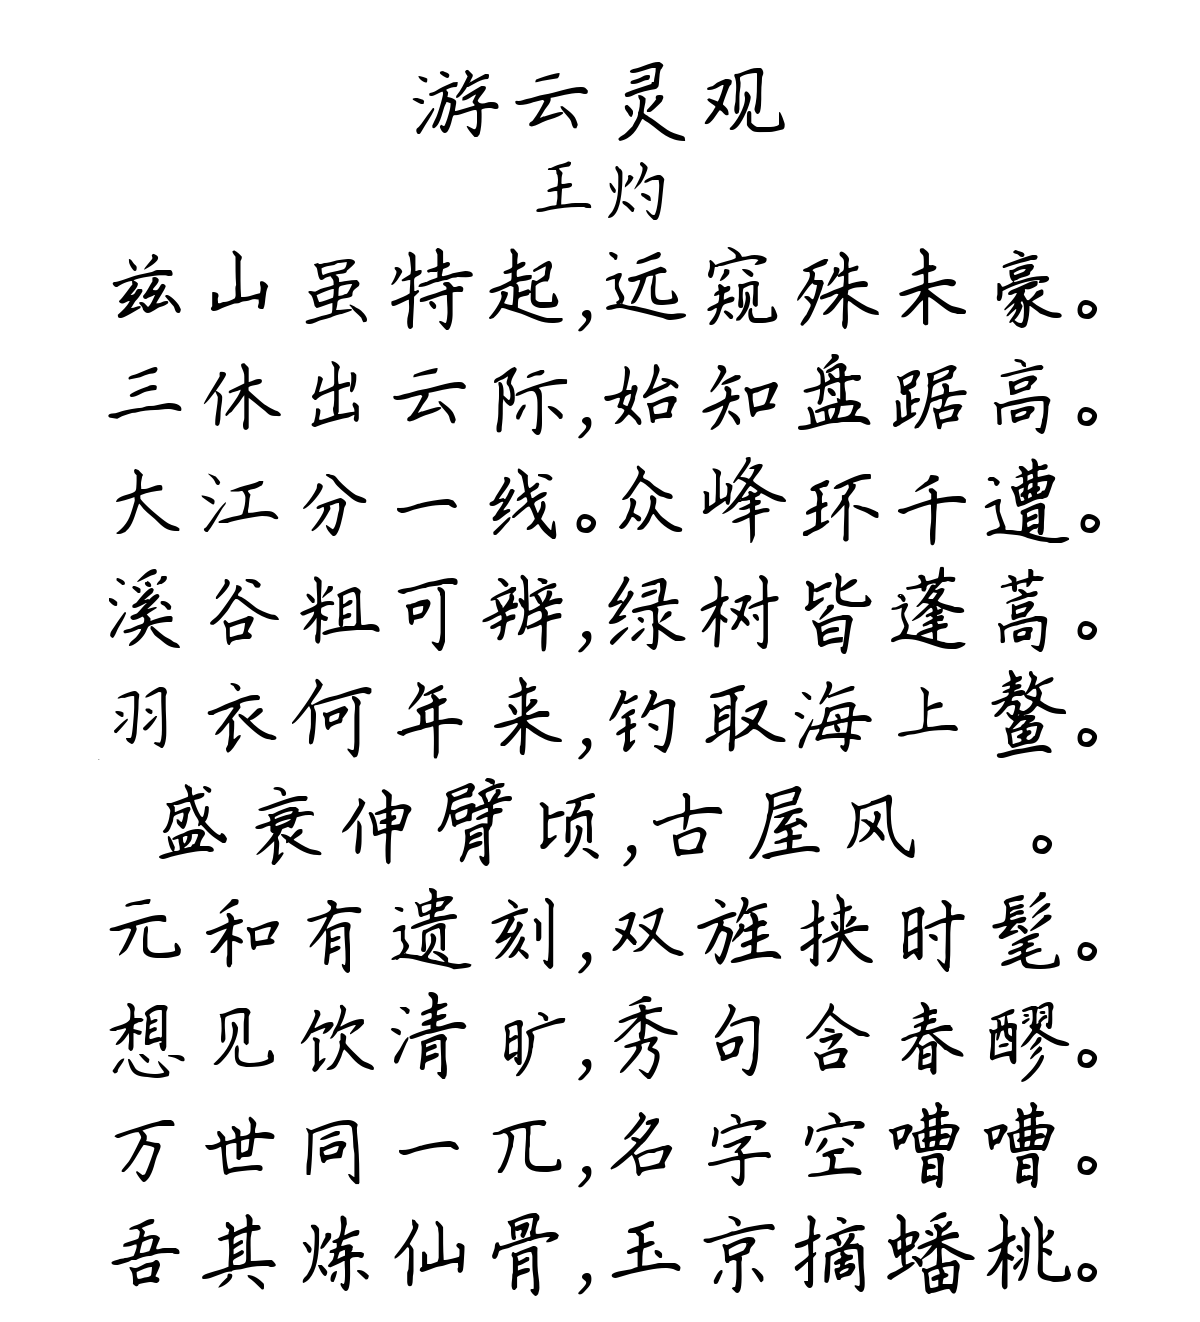 游云灵观
王灼
兹山虽特起,远窥殊未豪。
三休出云际,始知盘踞高。
大江分一线。众峰环千遭。
溪谷粗可辨,绿树皆蓬蒿。
羽衣何年来,钓取海上鳌。
盛衰伸臂顷,古屋风 。
元和有遗刻,双旌挟时髦。
想见饮清旷,秀句含春醪。
万世同一兀,名字空嘈嘈。
吾其炼仙骨,玉京摘蟠桃。